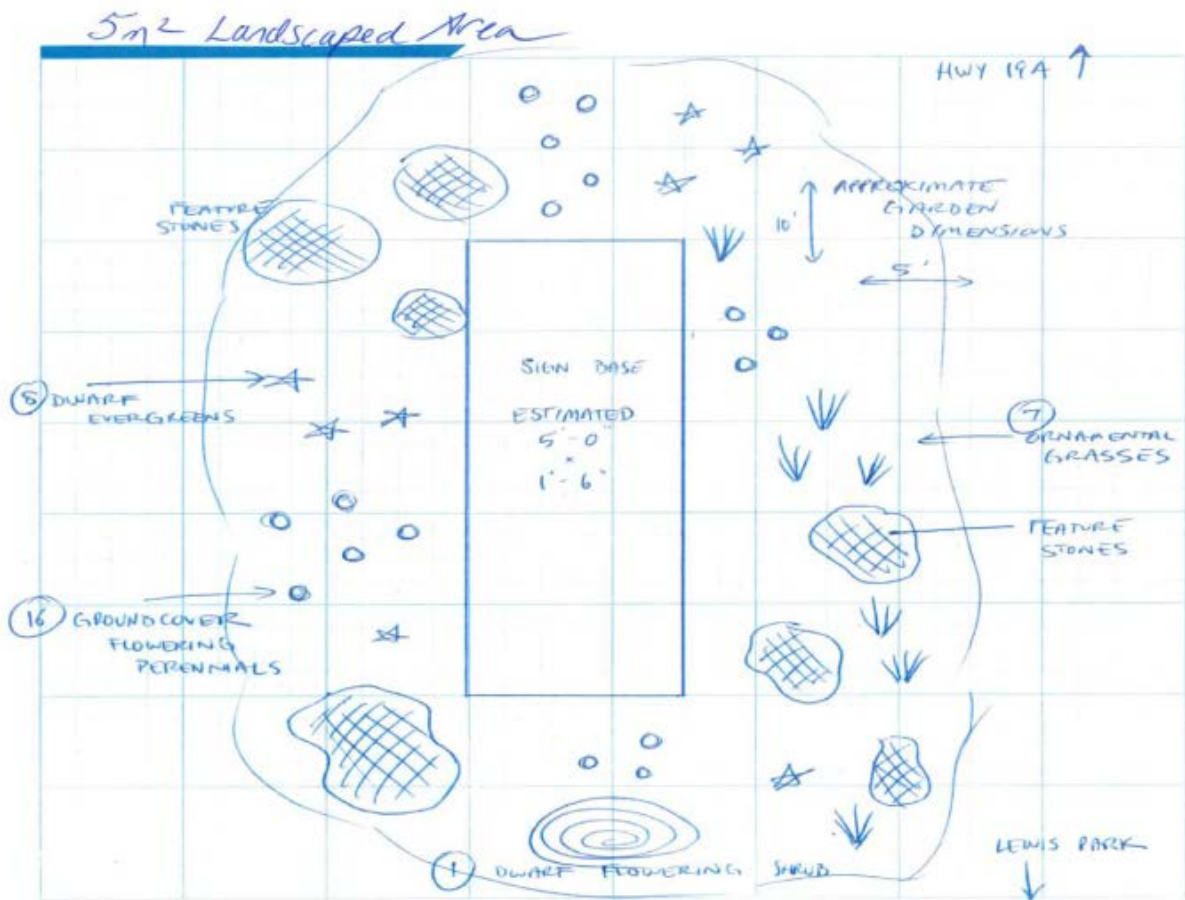 5m² Landscaped Area
HWY 19A
FEATURE
STONES
APPROXIMATE
GARDEN
DIMENSIONS
10'
5'
SIGN BASE
ESTIMATED
5'-0"
×
1'-6"
8 DWARF
EVERGREENS
7
ORNAMENTAL
GRASSES
FEATURE
STONES
16 GROUNDCOVER
FLOWERING
PERENNIALS
1 DWARF FLOWERING SHRUB
LEWIS PARK